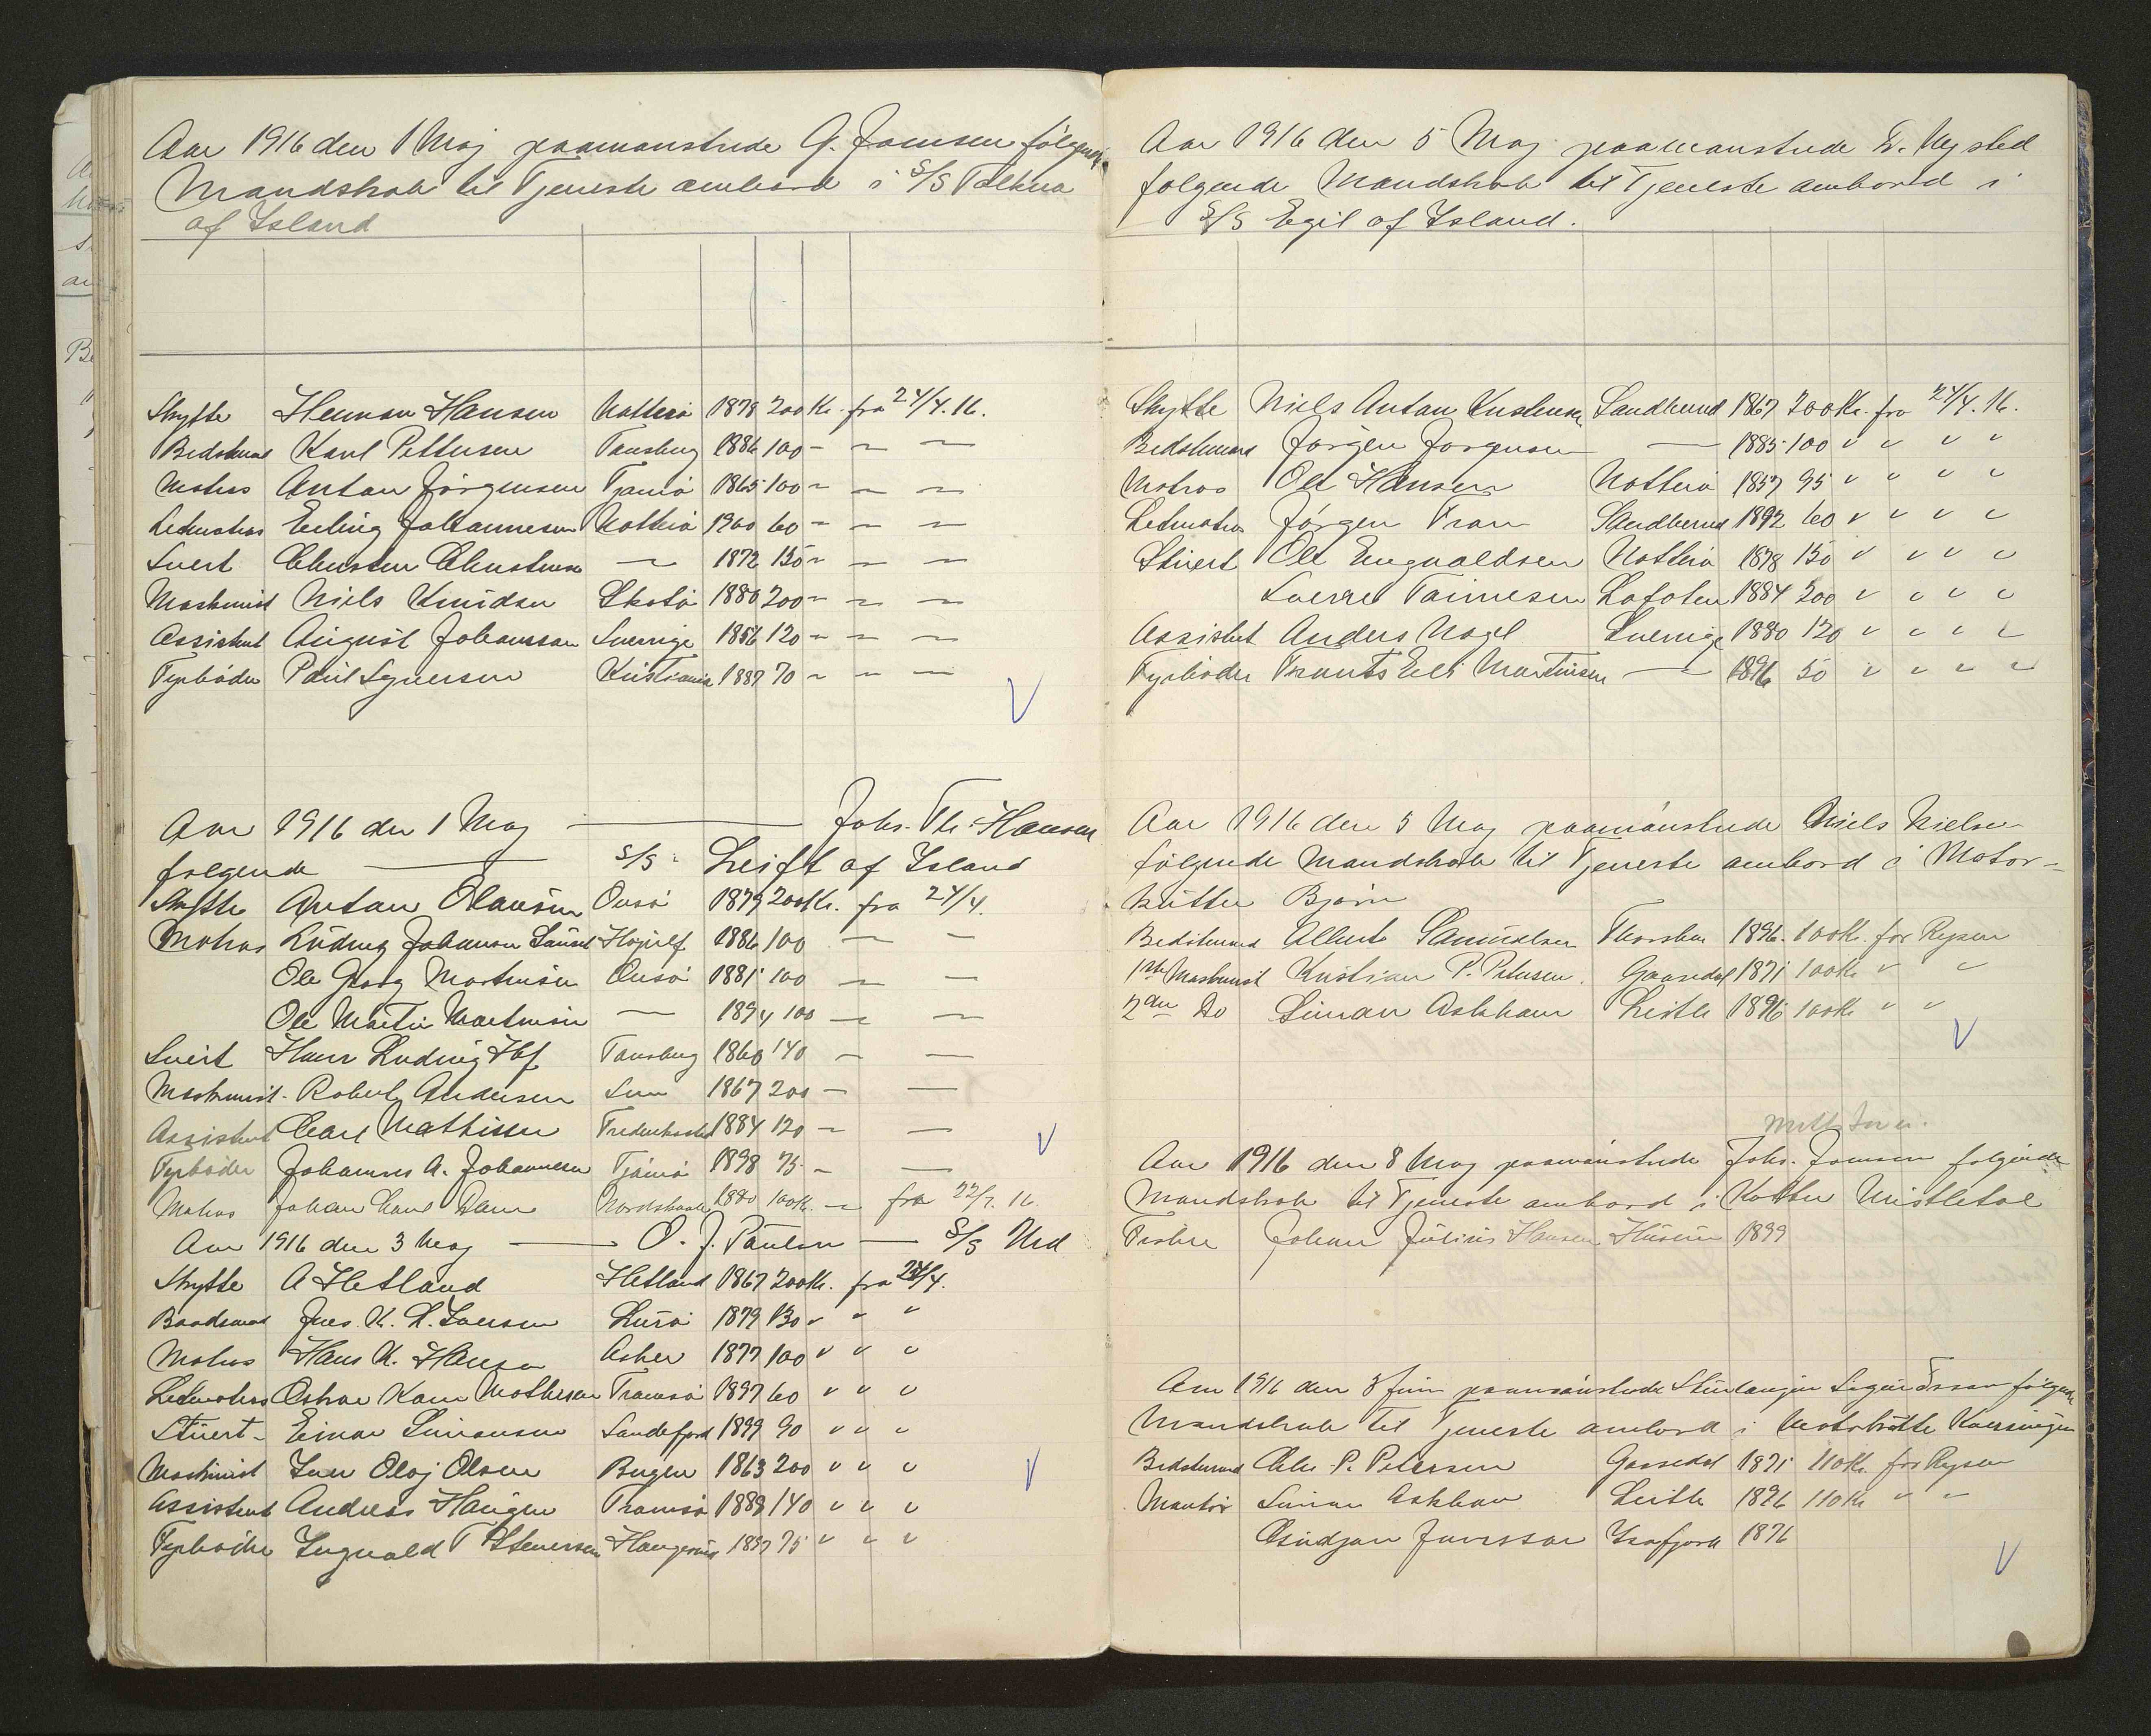 Aar 1916 den 1 Maj paamønstrede G. Jacobsen følgende
Mandskab til Tjeneste ombord i S/S Tálkna
af Island
Skytte Herman Hansen Nøtterø 1878 200 Kr. fra 24/4. 16.
Bedstmand Karl Pettersen Tønsberg 1886 100 - — —
Matros Anton Jörgensen Tjømø 1865 100 - — —
Letmatros Erling Johannesen Nøtterø 1900 60 - — —
Stuert Christen Christensen — 1872 150 - — —
Maskinist Niels Knudsen Skotø 1880 200 - — —
Assistent August Johansson Sverrige 1856 120 - — —
Fyrbøder Paul Syversen Kristiania 1887 70 - — —
Aar 1916 den 1 Maj — Johs. Th. Hansen
følgende — S/S Leift af Island
Skytte Anton Olausen Onsø 1879 200 Kr. fra 24/4.
Matros Ludvig Johansen 1886 100 — —
Ole Georg Martinsen Onsø 1881 100 — —
Ole Martin Martinsen — 1894 100 — —
Stuert Hans Ludvig Hof Tønsberg 1860 140 — —
Maskinist Robert Andersen Sem 1867 200 — —
Assistent Carl Mathisen Frederiksstad 1884 120 — —
Fyrbøder Johannes A. Johannesen Tjømø 1898 75 — —
Matros Johan Carl Dam Nordskaale 1880 100 Kr. — fra 22/7. 16.
Aar 1916 den 3 Maj — O. J. Paulsen — S/S Urd
Skytte A Hetland Hetland 1867 200 Kr. fra 24/4.
Baadsmand Jens. K. L. Iversen Lurø 1879 130 " "
Matros Hans K. Hansen Asker 1877 100 " " "
Letmatros Oskar Karl Mathisen Tromsø 1897 60 " " "
Stuert Einar Simonsen Sandefjord 1899 90 " " "
Maskinist Iver Olaj Olsen Bergen 1863 200 " " "
Assistent Andreas Haugen Tromsø 1889 140 " " "
Fyrbøder Ingvald T Stenersen Haugesund 1897 75 " " "
Aar 1916 den 5 Maj paamønstrede E. Nysted
følgende Mandskab til Tjeneste ombord i
S/S Egil af Island.
Skytte Niels Anton Kristensen Sandherred 1867 200 Kr. fra 24/4. 16.
Bedstemand Jørgen Jørgensen — 1885 100 " " " "
Matros Ole Hansen Nøtterø 1857 95 " " " "
Letmatros Jörgen Tran Sandherred 1892 60 " " " "
Stuert Ole Engvaldsen Nøtterø 1878 150 " " " "
Sverre Lofoten 1884 200 " " " "
Assistent Anders Nagel Sverrige 1880 120 " " " "
Fyrbøder Frants Martinsen — 1896 50 " " " "
Aar 1916 den 5 Maj paamønstrede Niels Nielsen
følgende Mandskab til Tjeneste ombord i Motor-
kutter Bjørn
Bedstemand Alberts Samuelsen Thorshavn 1896. 100 Kr. for Rejsen
1ste Maskinist Kristian P. Petersen. Gaasedal 1871 100 Kr " "
2den Do Simon Askham Leith 1896 100 Kr " "
Aar 1916 den 8 Maj paamønstrede Johs. Joensen følgende
Mandskab til Tjeneste ombord i Kutter Mistletoe
Fisker Johan Július Hansen Húsum 1899
Aar 1916 den 8 Juni paamønstrede Sturlaugur Sigurdsson følgende
Mandskab til Tjeneste ombord i Motorkutter
Bedstemand Chr. P. Petersen Gaasedal 1871 110 Kr. for Rejsen
Montør Simon Askham Leith 1896 110 Kr " "
Jonsson Isafjord 1876